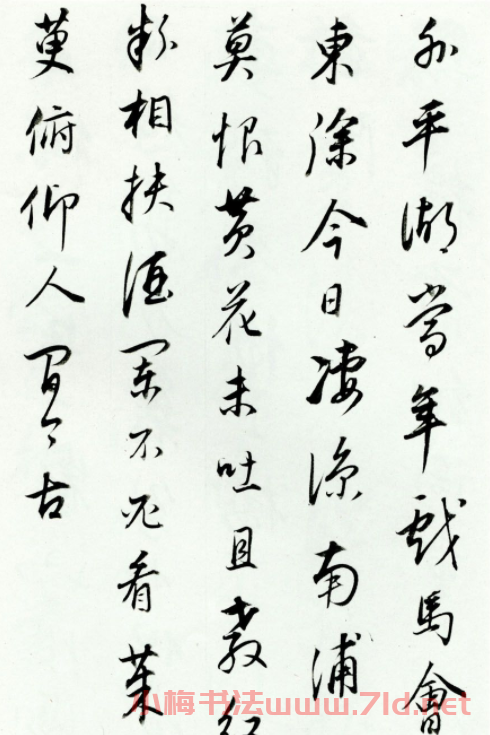 外平湖當年戲馬會
東徐今日凄涼南浦
莫恨黃花未吐且教紅
粉相扶酒闌不必看茱
萸俯仰人間今古
小梅书法www.7ld.net